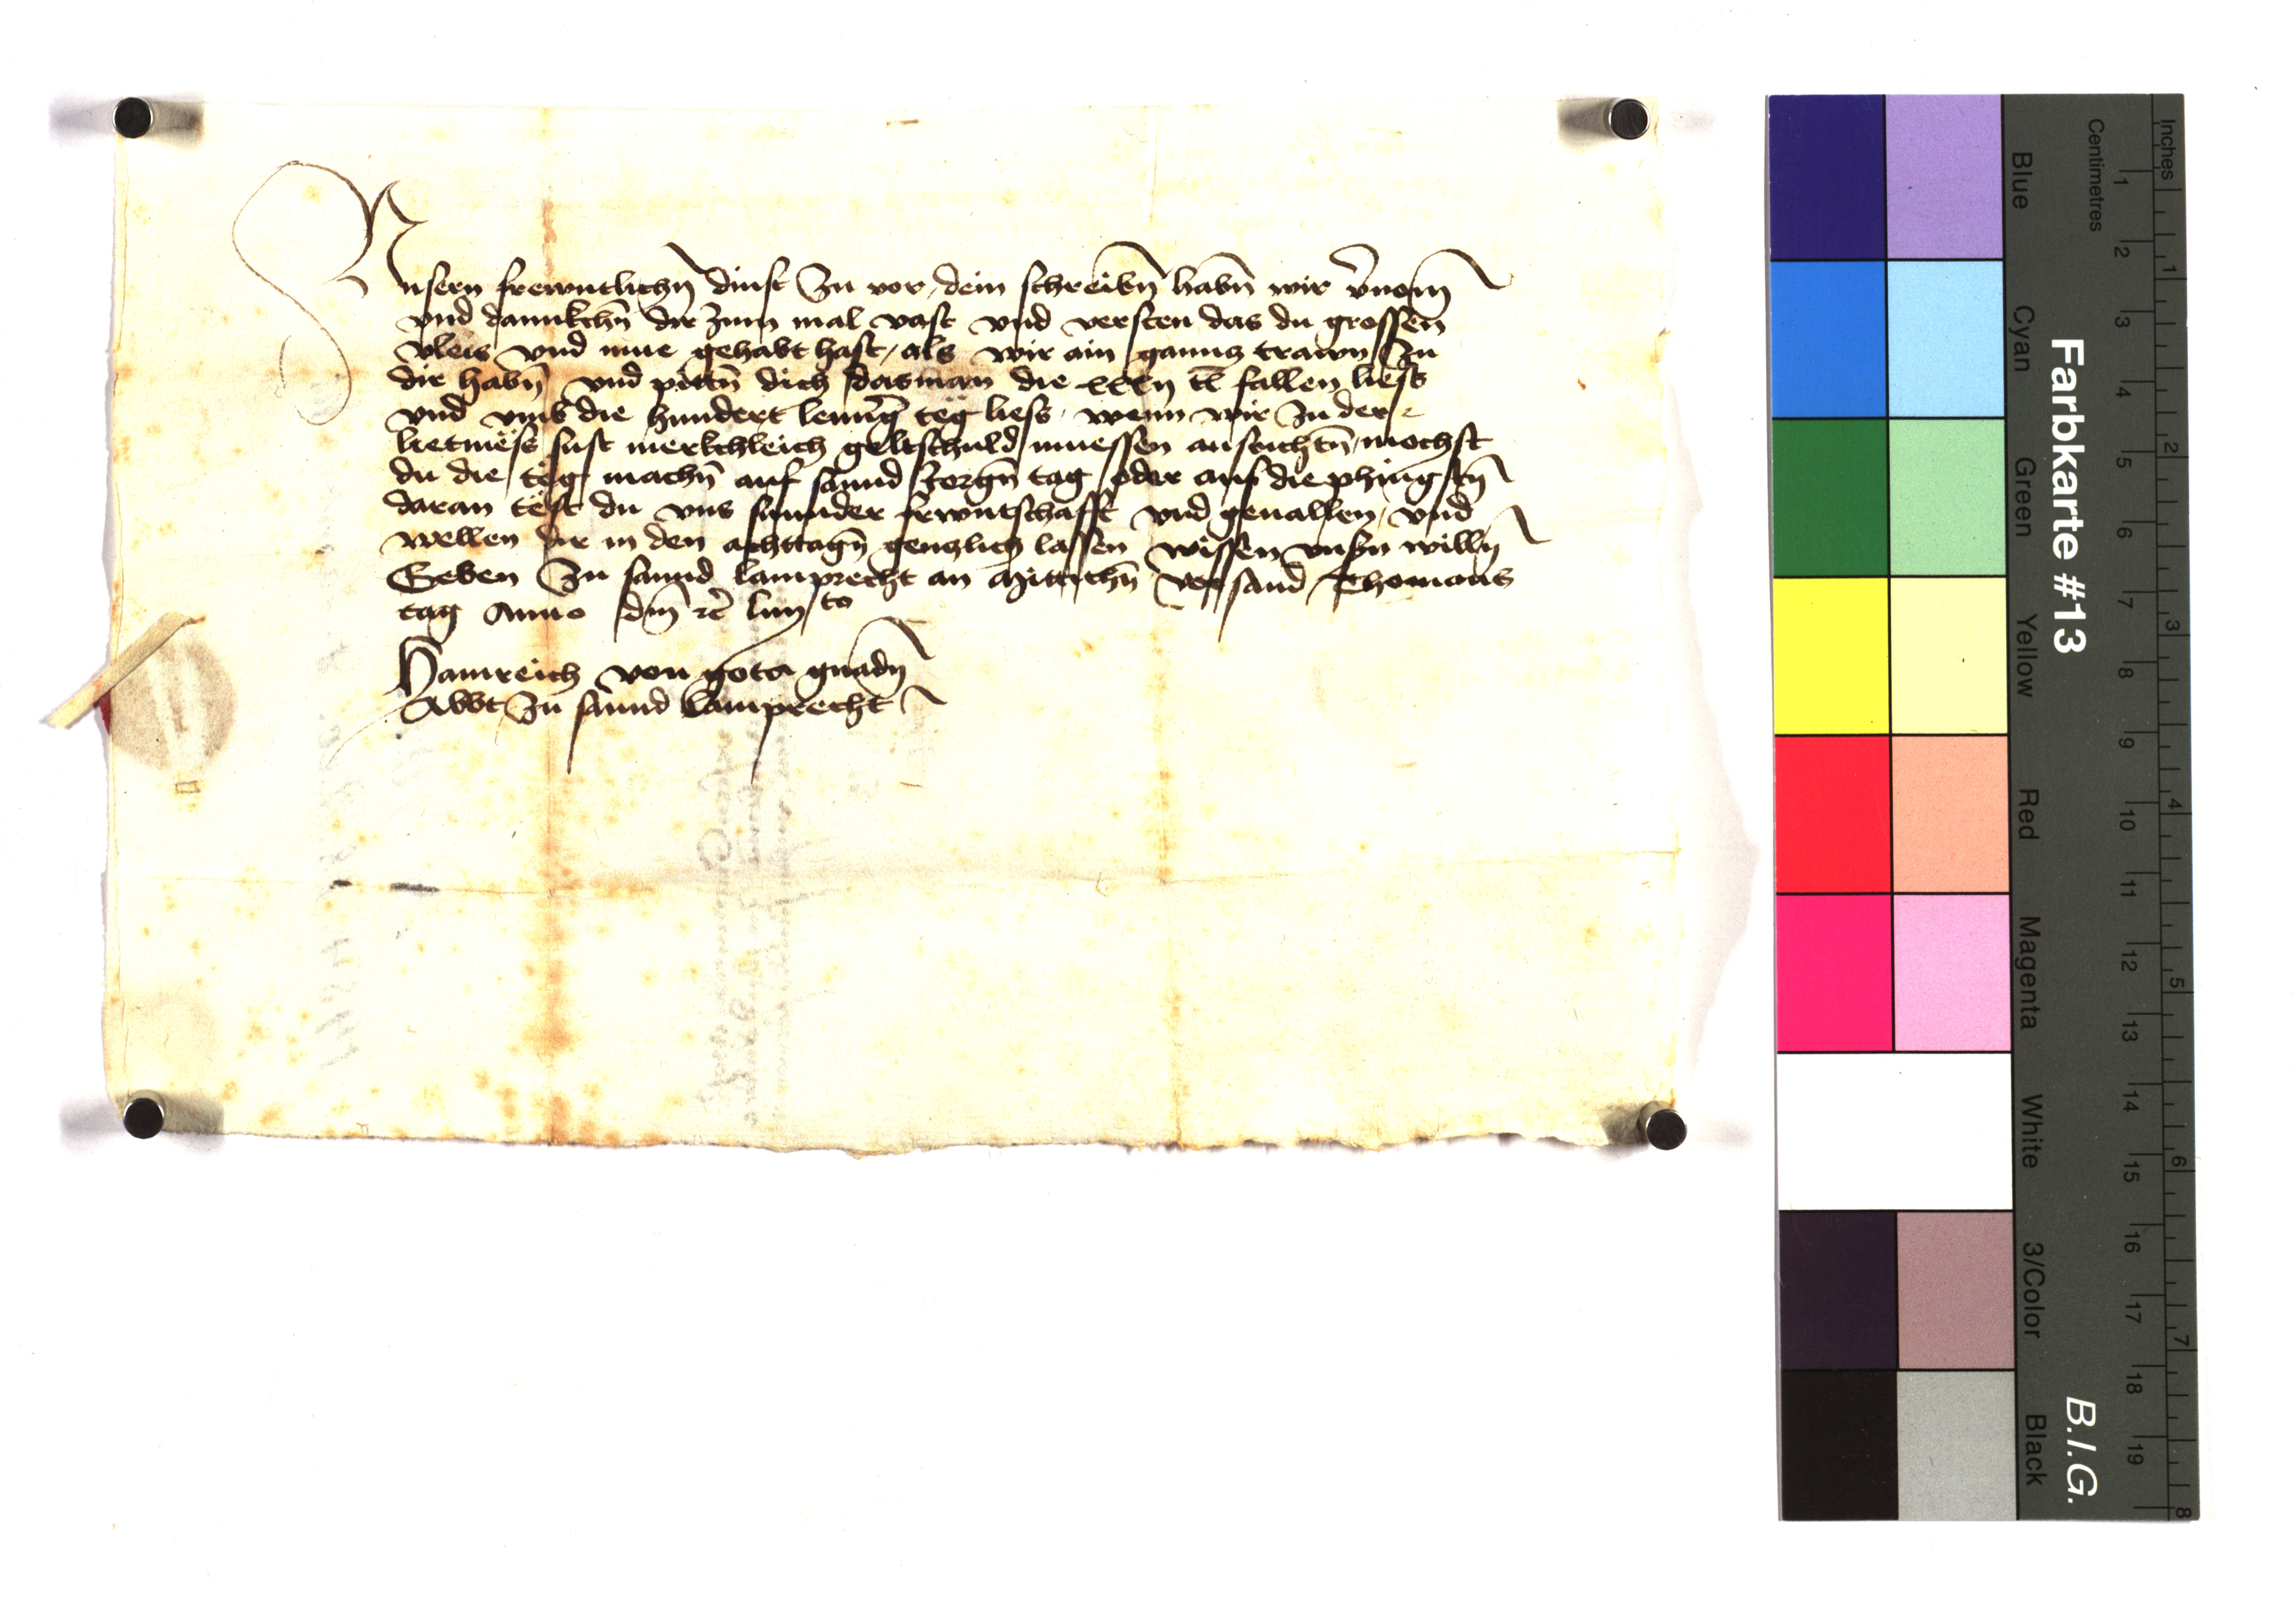 Vnsern frewntlichn̄ dinst Zu vor, dein schreibn̄ habn̄ wir v̄nom̄
vnd dannkchn̄ dir zum mal vast vnd versten das du grossen
vleis vnd mue gehabt hast, als wir ain gannz trawn Zu
dir habn̄ vnd pittn̄ dich das man die xxxij tl fallen liess
vnd vmb die hundert lenḡ teg liess, wenn wir Zu der
liectmess sust merkchleich geltschuld muessen ausrichtn̄, mochst
du die teg machn̄ auf sannd Jorgn̄ tag oder auf die phingstn̄
daran test du vns sunnder frwntschafft vnd geuallen, vnd
wellen dir in den achttagn̄ genzlich lassen wissen vnsn willn̄
Geben Zu sannd lamprecht an Mittichn̄ vor sand Thomans
tag Anno dm̄ rc̄ liiij to
Hainreich von gots gnadn̄
Abbt Zu sannd Lamprecht
Farbkarte #13
B.I.G.
Blue
Cyan
Green
Yellow
Red
Magenta
White
3/Color
Black
Centimetres
1 2 3 4 5 6 7 8 9 10 11 12 13 14 15 16 17 18 19
Inches
1 2 3 4 5 6 7 8